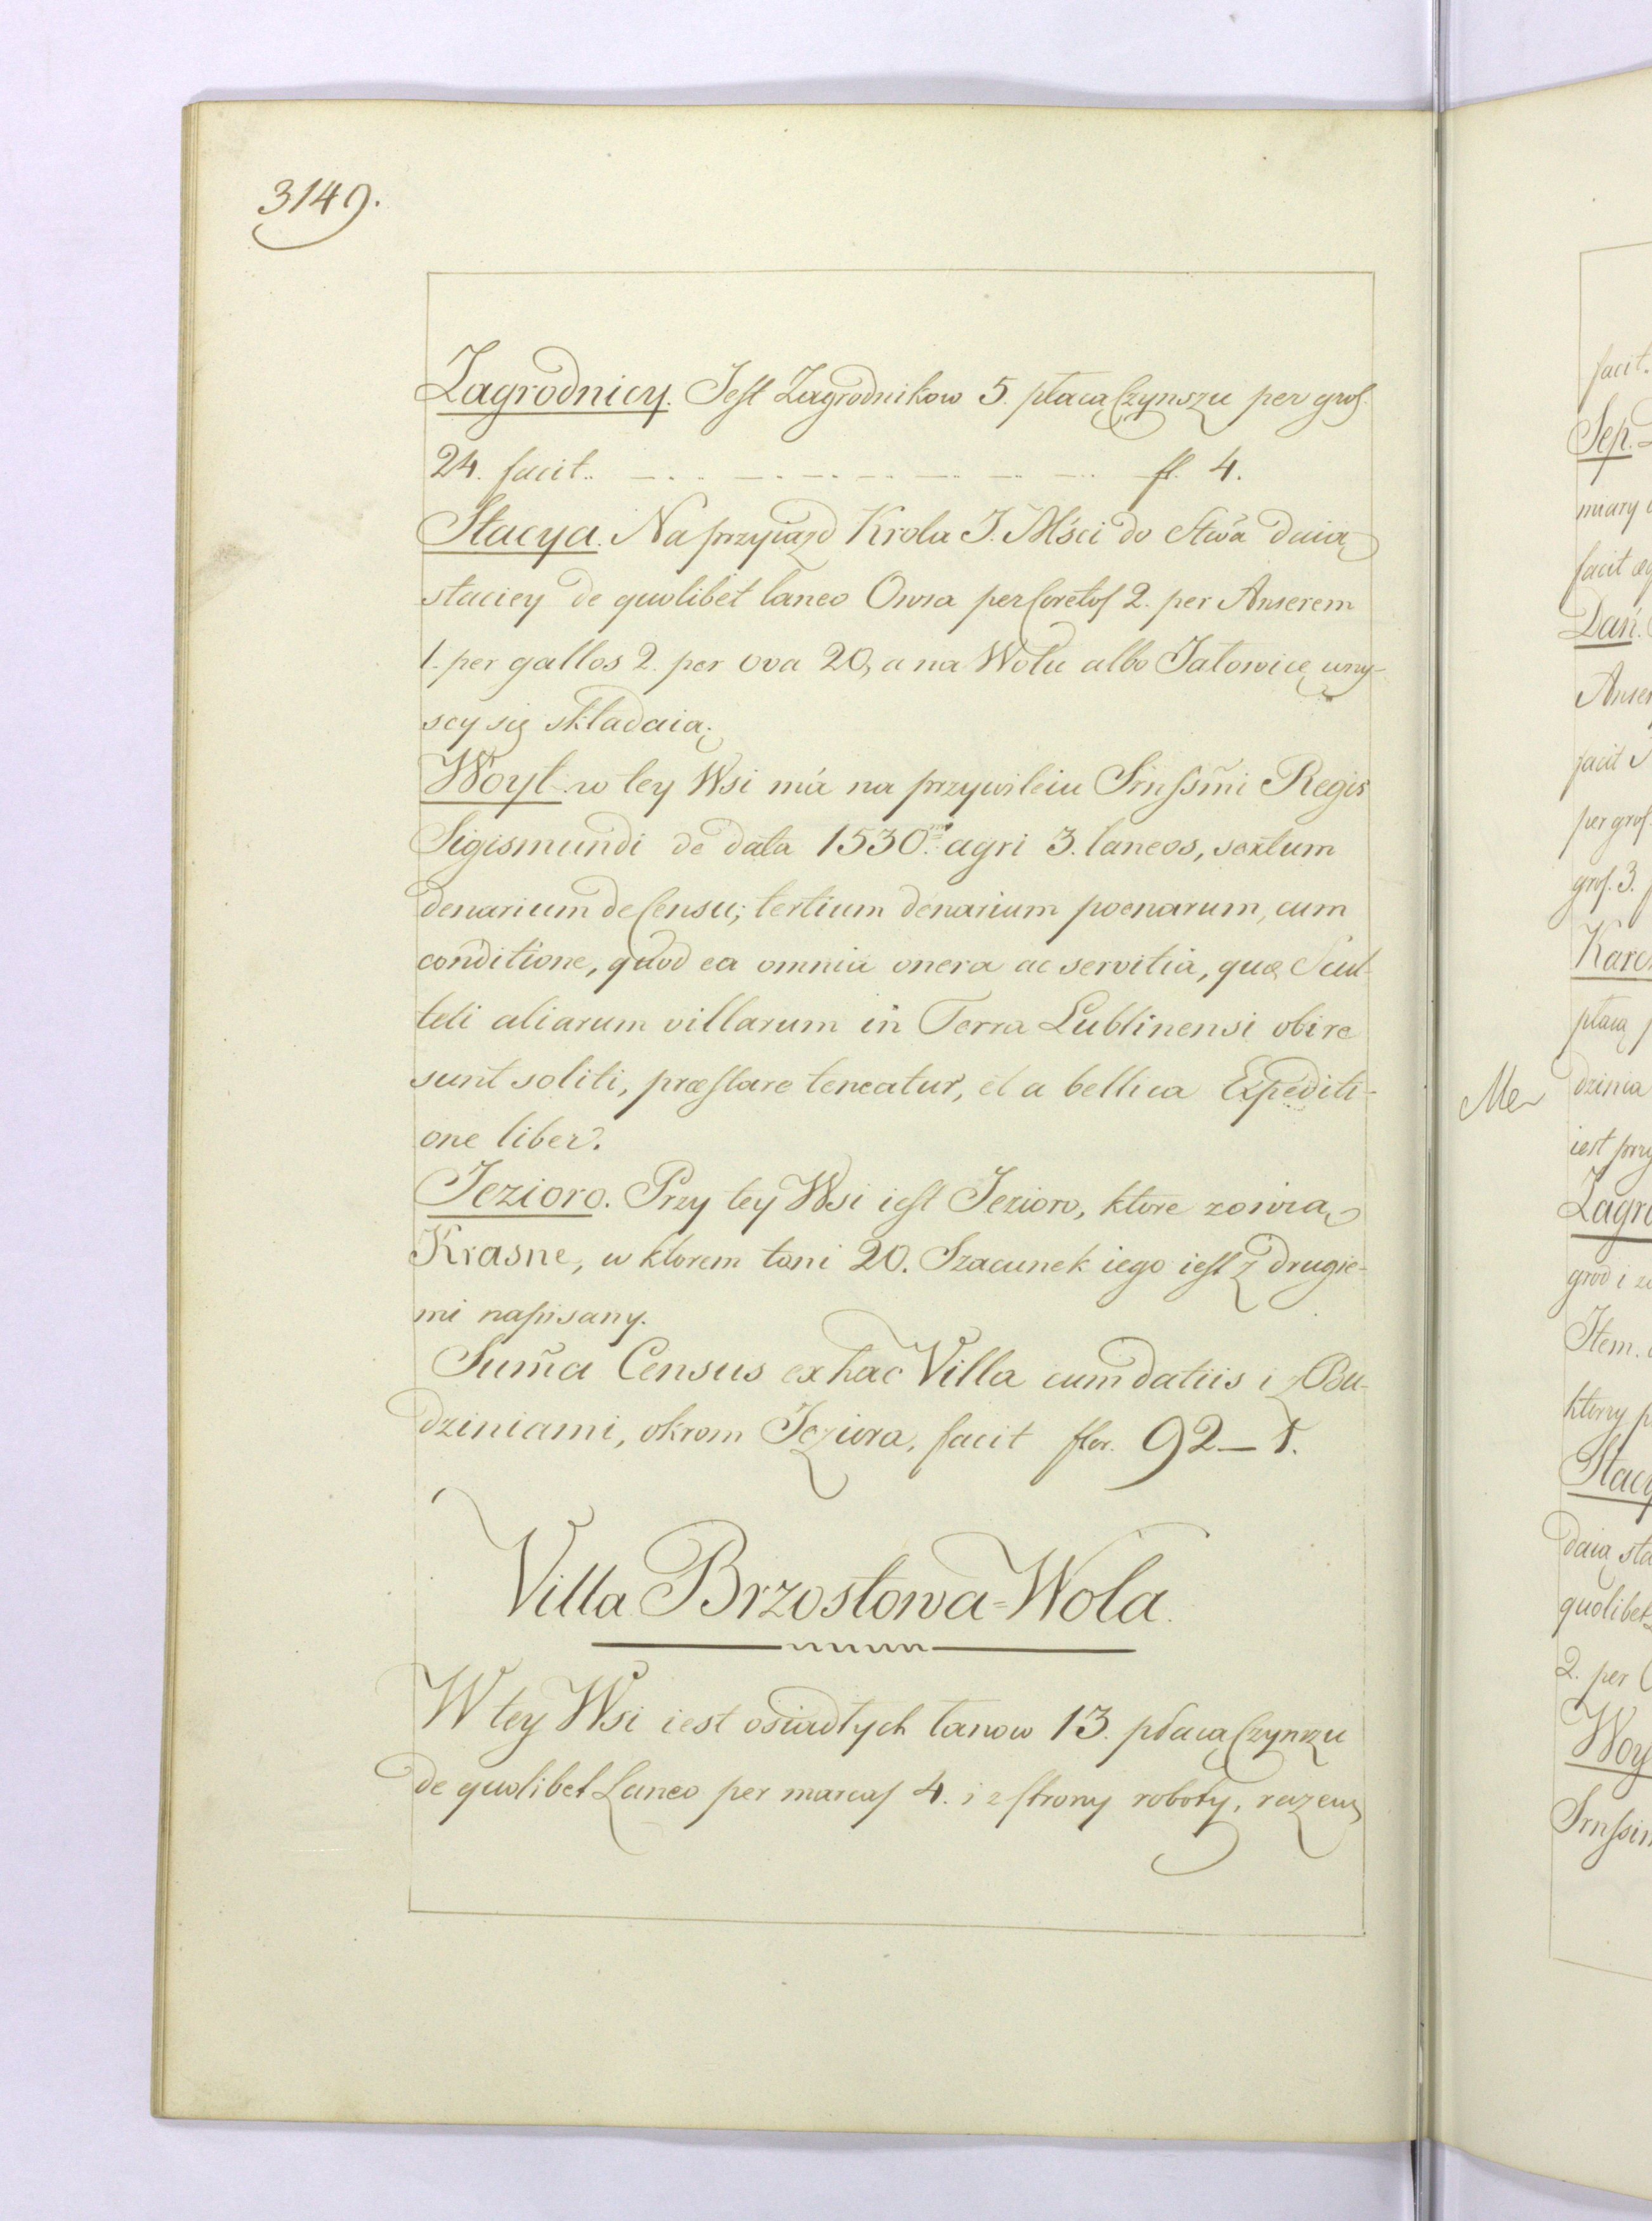 3149.
Zagrodnicy. Jest Zagrodnikow 5. płacą Czynszu per gros.
24. facit.. fl. 4.
Stacya. Na przyiazd Krola J. Mści do Stwa daią
staciey de quolibet laneo Owsa per Coretos 2. per Anserem
1. per gallos 2. per ova 20, a na Wołu albo Jałowicę wny-
scy się składaią.
Woyt w tey Wsi má na przywileiu Srnssmi Regis
Sigismundi de data 1530. agri 3. laneos, sextum
denarium de Censu; tertium denarium poenarum, cum
conditione, quod ea omnia onera ac servitia, quæ Scul-
teti aliarum villarum in Terra Lublinensi obire
sunt soliti, præstare teneatur, et a bellica Expediti-
one liber.
Jezioro. Przy tey Wsi iest Jezioro, ktore zowią
Krasne, w ktorem toni 20. Szacunek iego iest z drugie-
mi napisany.
Sum̃a Census ex hac Villa cum datiis i z Bu-
dziniami, okrom Jeziora, facit flor. 92—1.
Villa Brzostowa=Wola.
W tey Wsi iest osiadłych łanow 13. płacą Czynszu
de quolibet Laneo per marcas 4. i z strony roboty, razem
facit.
Sep.
miary
facit
Dań.
Anser
facit
per gros.
gros. 3.
płacą
dzinia
iest przy
Zagro
grod i
Item.
ktorzy
Stacy
daią sta
quolibet
2. per
Woy
Srnssim